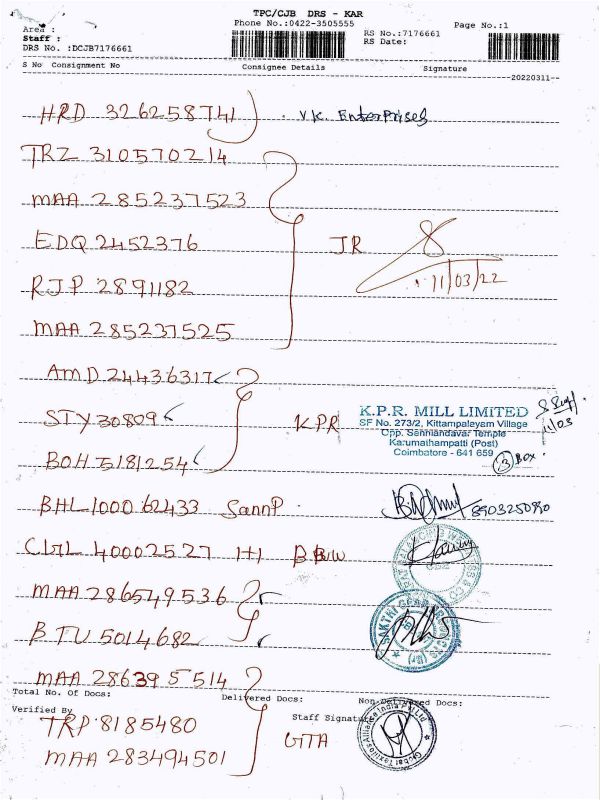 TPC/CJB DRS - KAR
Phone No.:0422-3505555
Page No.:1
Area :
Staff :
DRS No. :DCJB7176661
RS No.:7176661
RS Date:
S No Consignment No Consignee Details Signature
20220311
HRD 326258741 V.K. Enterprises
TRZ 310570214
MAA 285237523
EDQ 2452376 JR
11/03/22
RJP 2891182
MAA 285237525
AMD 24436317
STY 30809 KPR
BOH 5181254
K.P.R. MILL LIMITED
SF No. 273/2, Kittampalayam Village
Opp. Senniandavar Temple
Karumathampatti (Post)
Coimbatore - 641 659
11/03
3 Box
BHL 1000 62433 SannP
8903250990
CLGL 40002527 1+1
MAA 286549536
BTU 5014682
SAKTHI GEAR
MAA 286395514
Total No. Of Docs: Delivered Docs: Non-Delivered Docs:
Verified By
Staff Signature
TRP 8185480
GTA
MAA 283494501
Global Textiles Alliance India Pvt Ltd